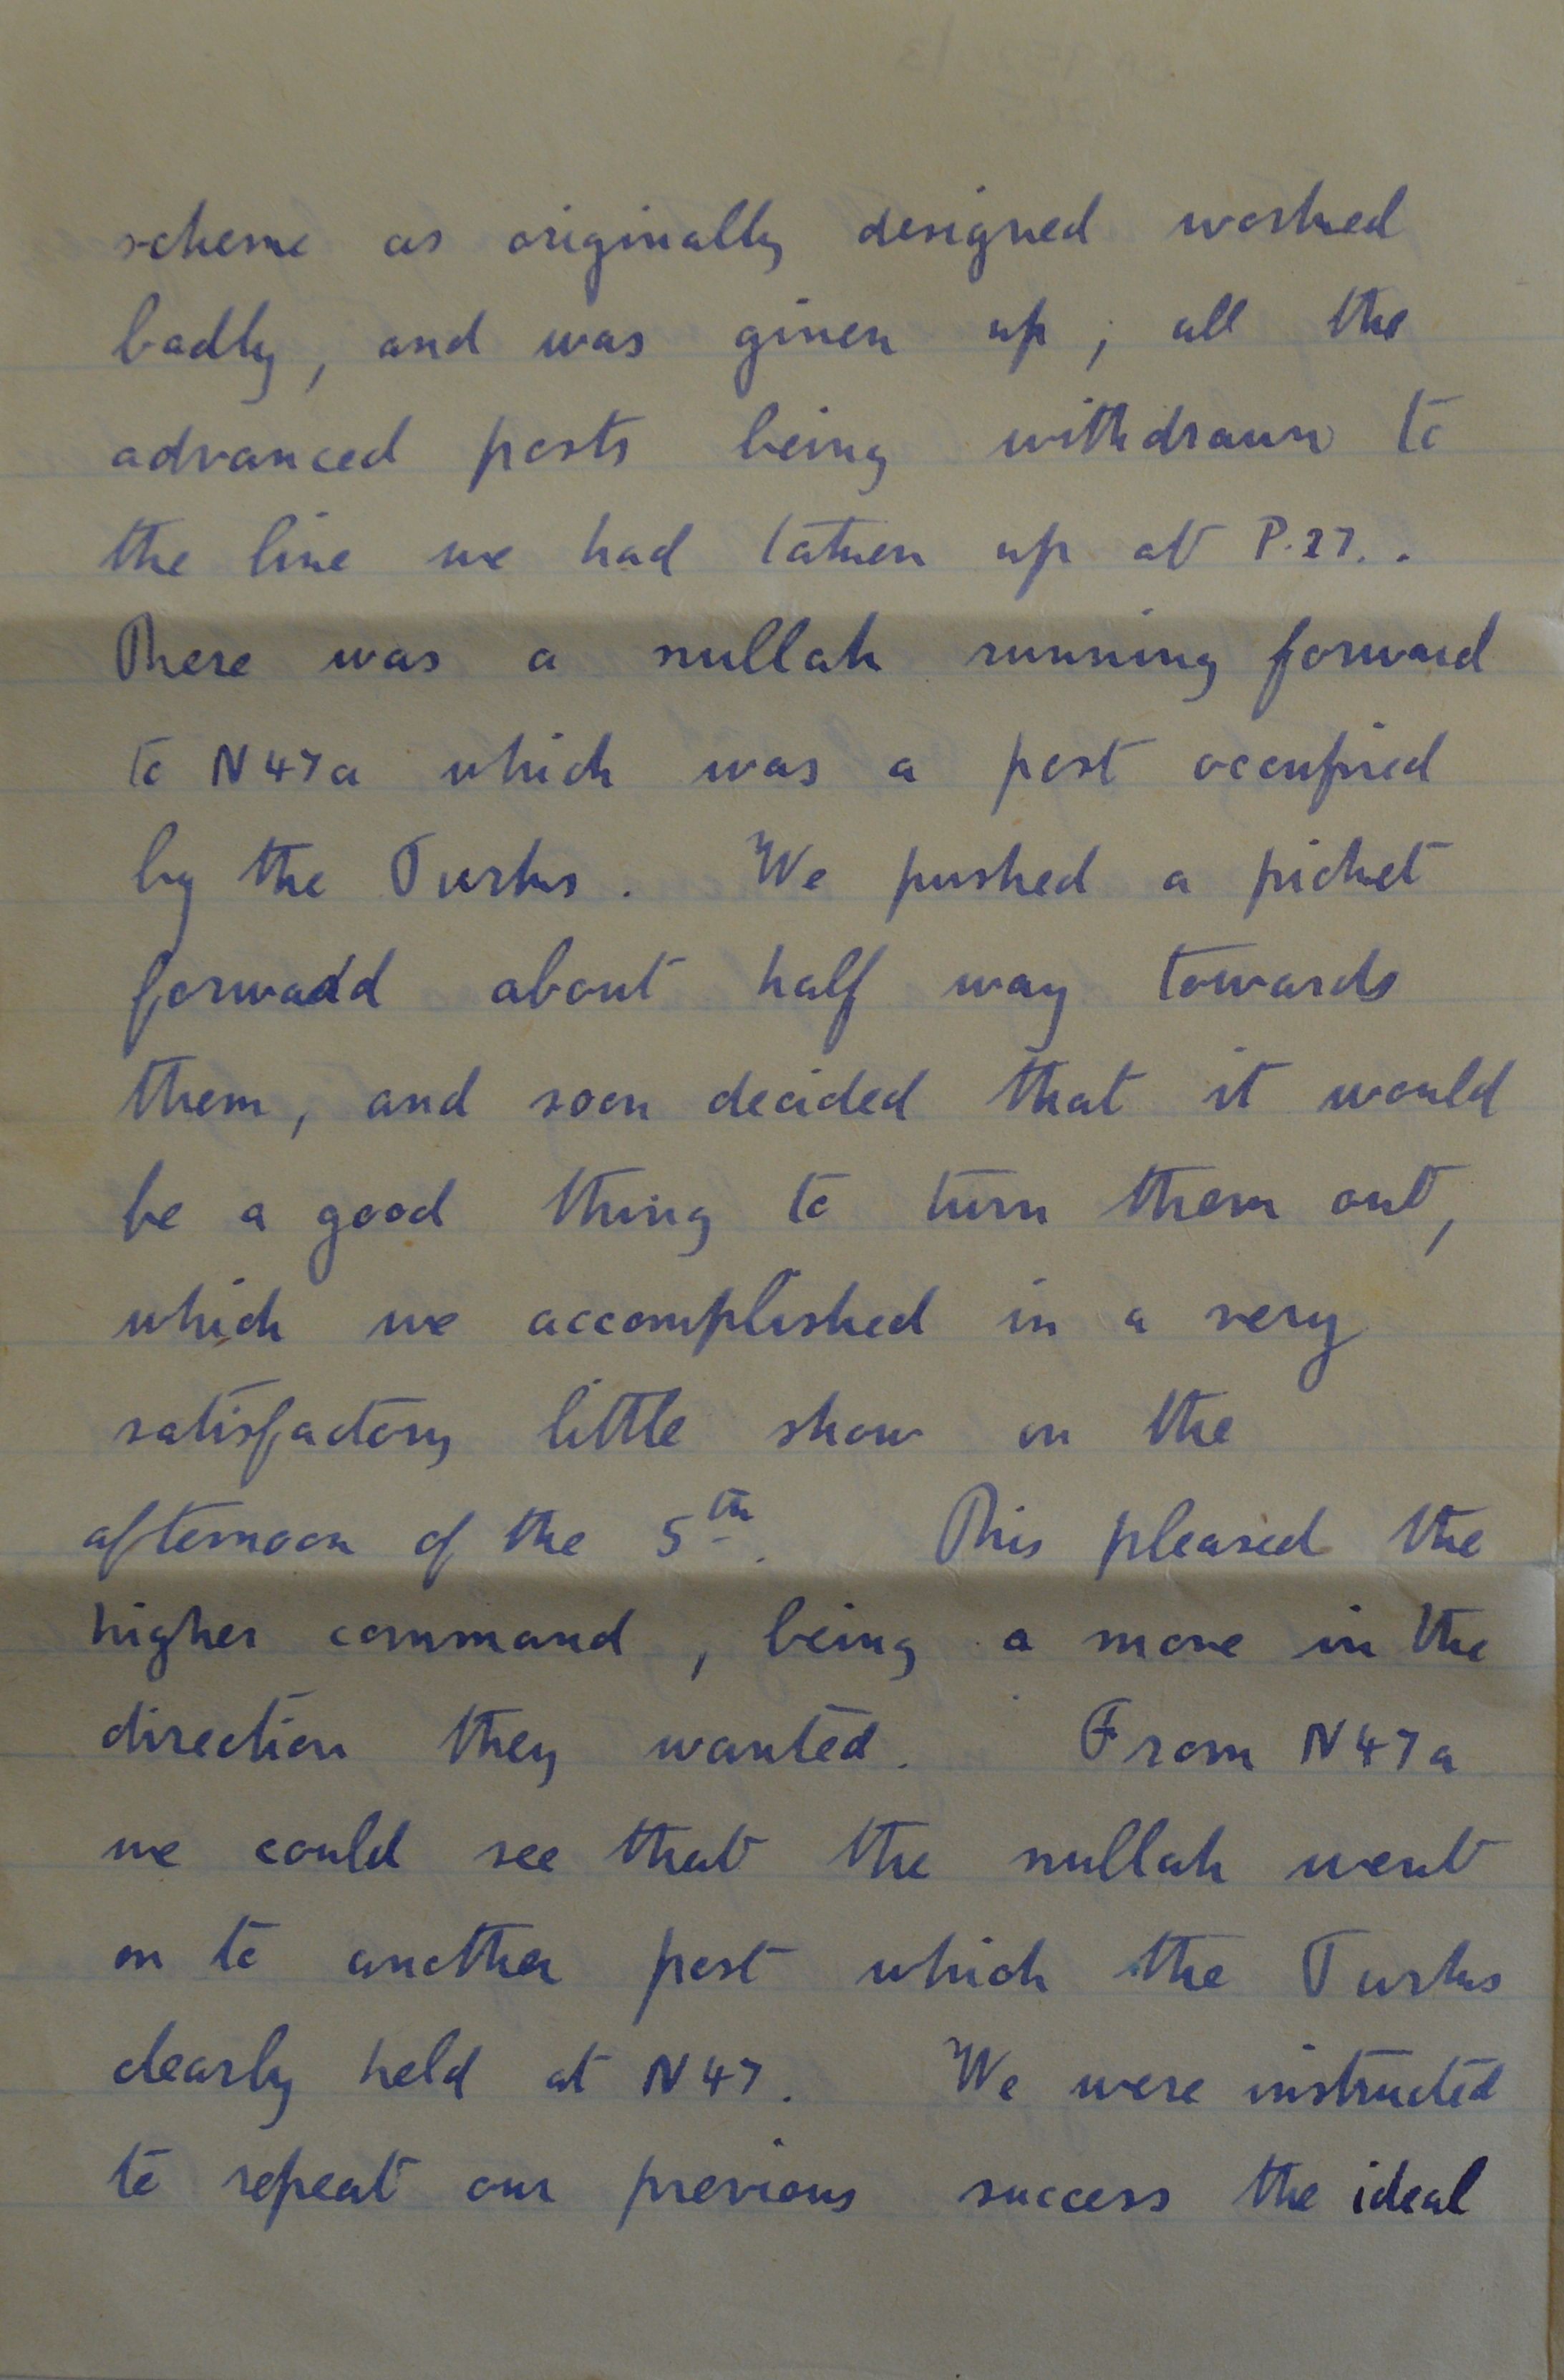 scheme as originally designed worked
badly, and was given up; all the
advanced posts being withdrawn to
the line we had taken up at P.27..
There was a nullah running forward
to N47a which was a post occupied
by the Turks. We pushed a picket
forwadd about half way towards
them, and soon decided that it would
be a good thing to turn them out,
which we accomplished in a very
satisfactory little show on the
afternoon of the 5th. This pleased the
higher command, being a move in the
direction they wanted. From N47a
we could see that the nullah went
on to another post which the Turks
clearly held at N47. We were instructed
to repeat our previous success the ideal